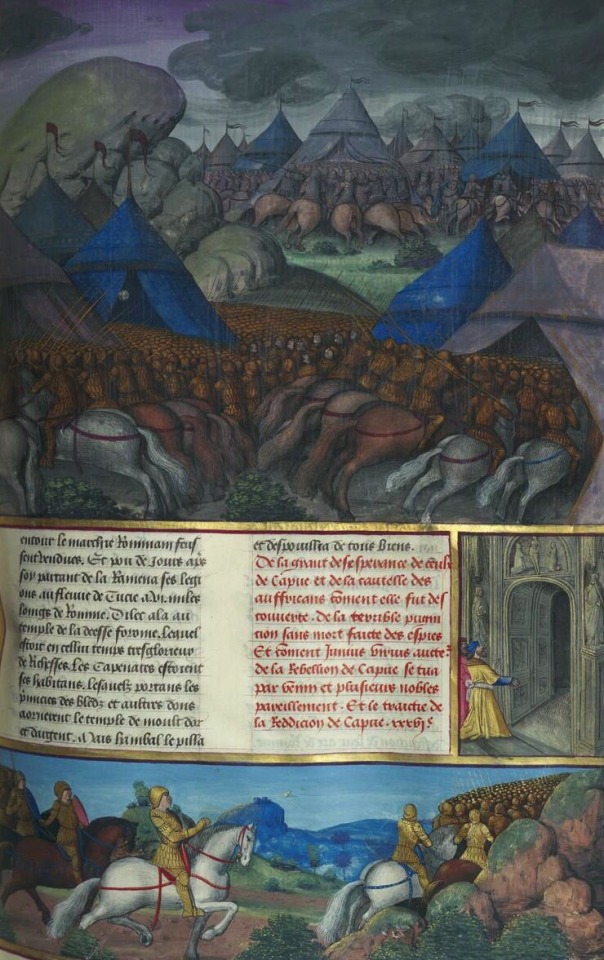 entour le marchie Rommain feus
sent vendues. Et pou de Jours aps
soy partant de la Ramena ses legi
ons au fleuue de Tucie a .vi. miles
loings de Romme. Dilec ala au
temple de la deesse feronie, lequel
estoit en cellui temps tresglorieux
de Richesses. Les Capenates estoient
ses habitans. lesquelz portans les
pmices des bledz et aultres dons
aornerent le temple de moult dor
et dargent. Mais hanibal le pilla
et despouilla de tous biens.
De la grant desesperance de ceulx
de Capue et de la cautelle des
auffricans cōment elle fut des
couuerte. de la terrible puni
cion sans mort faicte des espies
Et cōment Junius virius aucte²
de la Rebellion de Capue se tua
par venin et plusieurs nobles
pareillement. Et se traictie de
la Reddicion de Capue .xxxvi.